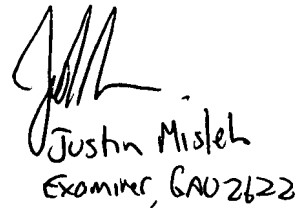 Justin Misleh
Examiner, GAU 2622